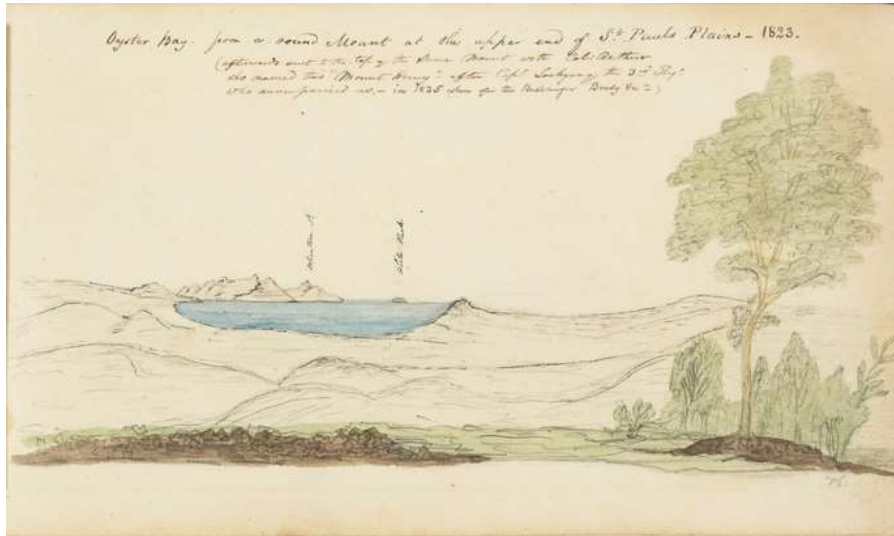 Oyster Bay from a round Mount at the upper end of St. Pauls Plains – 1823.
(afterwards went to the top of the same Mount with Col. Arthur
who named this "Mount Henry" after Capt of the 3rd
who accompanied us – in 1825 when after the Bushranger Brady &c)
White Rock